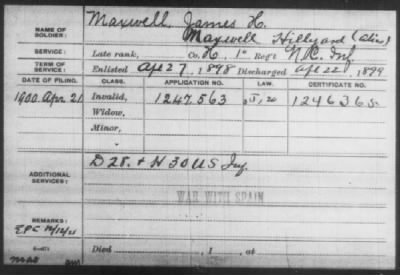 NAME OF SOLDIER: Maxwell, James H.
Maxwell Hillyard (Alias)
SERVICE: Late rank, Co. H, 1" Reg't N.C. Inf.
TERM OF SERVICE: Enlisted Apl 27, 1898 Discharged Apl 22, 1899
DATE OF FILING. CLASS. APPLICATION NO. LAW. CERTIFICATE NO.
1900 Apr. 21 Invalid, 1247.563 1246365
Widow,
Minor,
ADDITIONAL SERVICES: D 28. & H 30 US Inf.
WAR WITH SPAIN
REMARKS:
EPC 12/12/21
Died , 1 , at